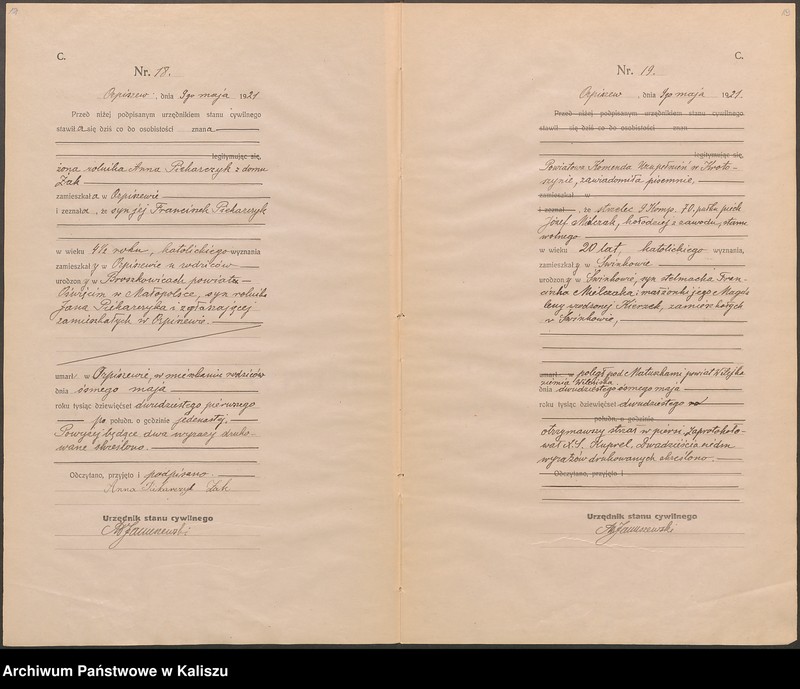 C.
Nr. 18.
Orpiszew, dnia 9go maja 1921
Przed niżej podpisanym urzędnikiem stanu cywilnego
stawiła się dziś co do osobistości znana
legitymując się,
żona rolnika Anna Piekarczyk z domu
Żak
zamieszkała w Orpiszewie
i zeznała, że syn jej Franciszek Piekarczyk
w wieku 4½ roku, katolickiego wyznania
zamieszkały w Orpiszewie u rodziców
urodzony w Broszkowicach powiatu
Oświęcim w Małopolsce, syn rolnika
Jana Piekarczyka i zgłaszającej
zamieszkałych w Orpiszewie
umarł w Orpiszewie, w mieszkaniu rodziców
dnia ósmego maja
roku tysiąc dziewięćset dwudziestego pierwszego
po połudn. o godzinie jedenastej.
Powyżej będące dwa wyrazy druko-
wane skreślono.
Odczytano, przyjęto i podpisano
Anna Piekarczyk Żak
Urzędnik stanu cywilnego
C.
Nr. 19.
Orpiszew, dnia 9go maja 1921.
Przed niżej podpisanym urzędnikiem stanu cywilnego
stawił się dziś co do osobistości znan
legitymując się,
Powiatowa Komenda Uzupełnień w Kroto-
szynie, zawiadomiła pisemnie,
zamieszkał w
i zeznał, że strzelec 9 Komp. 70. pułku piech.
Józef Mielczak, kołodziej z zawodu, stanu
wolnego
w wieku 20 lat, katolickiego wyznania,
zamieszkały w Świnkowie
urodzony w Świnkowie, syn stelmacha Fran-
ciszka Mielczaka i małżonki jego Magda
leny urodzonej Kierzek, zamieszkałych
w Świnkowie,
umarł w poległ pod Matuszkami powiat Wilejka
ziemia Wileńska
dnia dwudziestego ósmego maja
roku tysiąc dziewięćset dwudziestego
połudn. o godzinie
otrzymawszy strzał w piersi. Zaprotokoło-
wał Kuprel. Dwadzieścia siedm
wyrazów drukowanych skreślono.
Odczytano, przyjęto i
Urzędnik stanu cywilnego
Archiwum Państwowe w Kaliszu